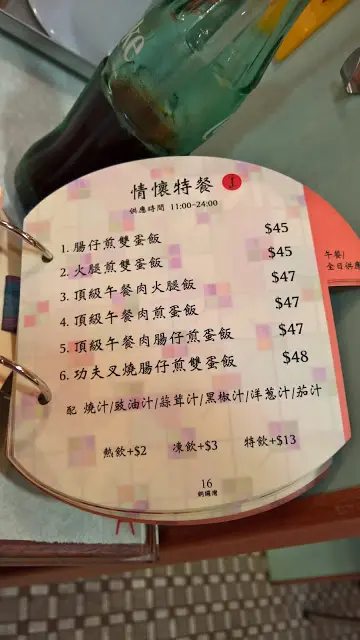 ke
情懷特餐
供應時間 11:00-24:00
1. 腸仔煎雙蛋飯 $45
2. 火腿煎雙蛋飯 $45
3. 頂級午餐肉火腿飯 $47
4. 頂級午餐肉煎蛋飯 $47
5. 頂級午餐肉腸仔煎蛋飯 $47
6. 功夫叉燒腸仔煎雙蛋飯 $48
配 燒汁/豉油汁/蒜茸汁/黑椒汁/洋葱汁/茄汁
熱飲+$2 凍飲+$3 特飲+$13
16
銅鑼灣
午餐/
全日供應